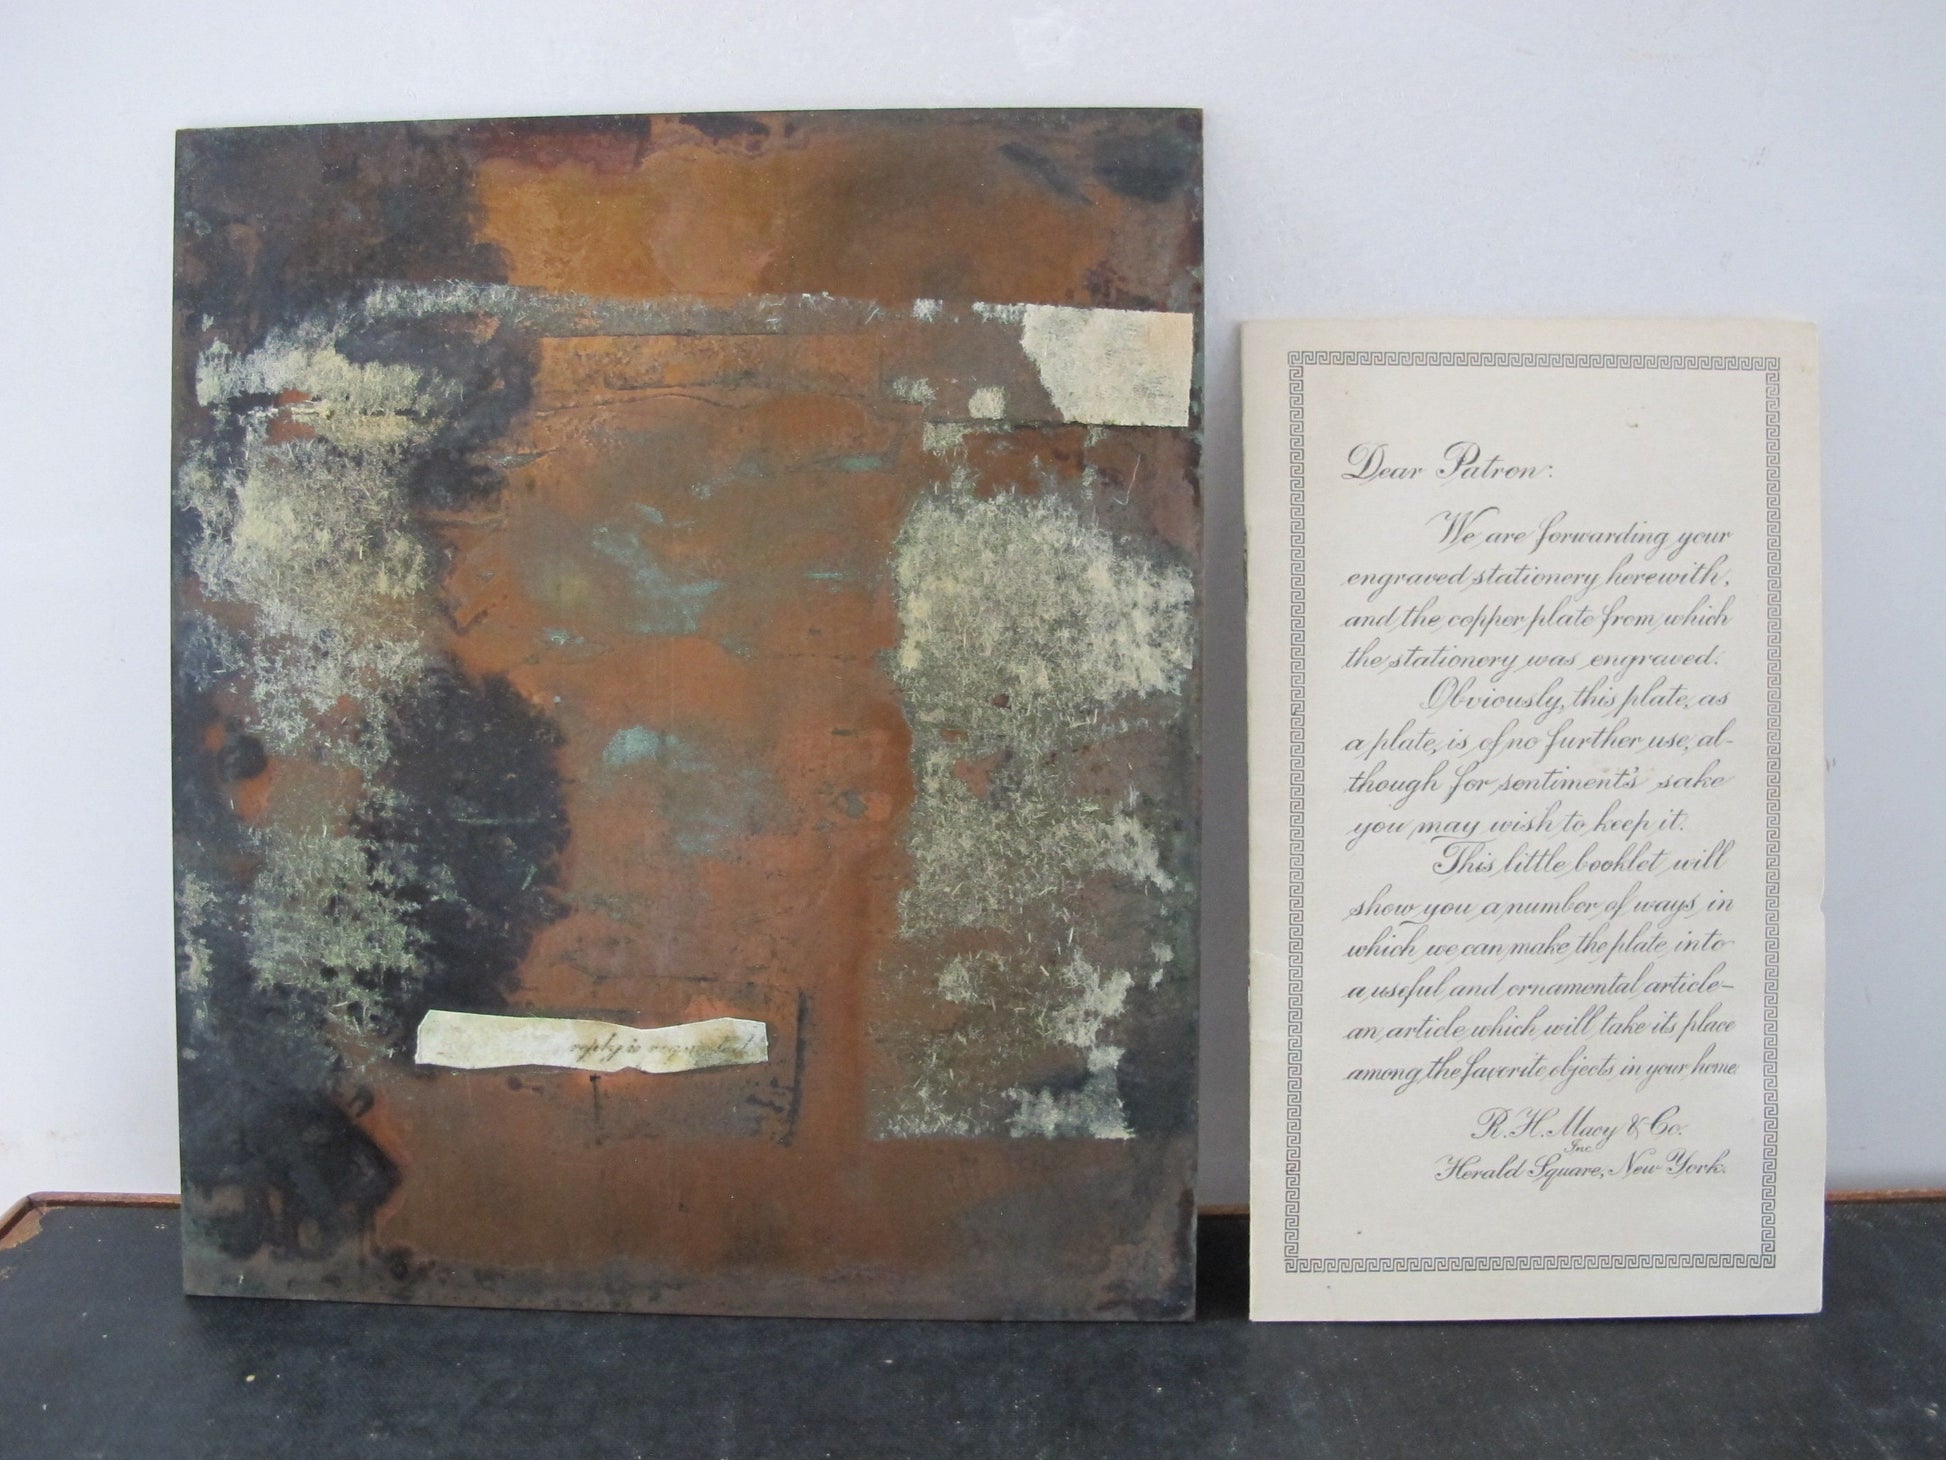 Dear Patron:
We are forwarding your
engraved stationery herewith,
and the copper plate from which
the stationery was engraved.
Obviously, this plate, as
a plate, is of no further use, al-
though for sentiment's sake
you may wish to keep it.
This little booklet will
show you a number of ways in
which we can make the plate into
a useful and ornamental article-
an article which will take its place
among the favorite objects in your home
R. H. Macy & Co.
Inc
Herald Square, New York.